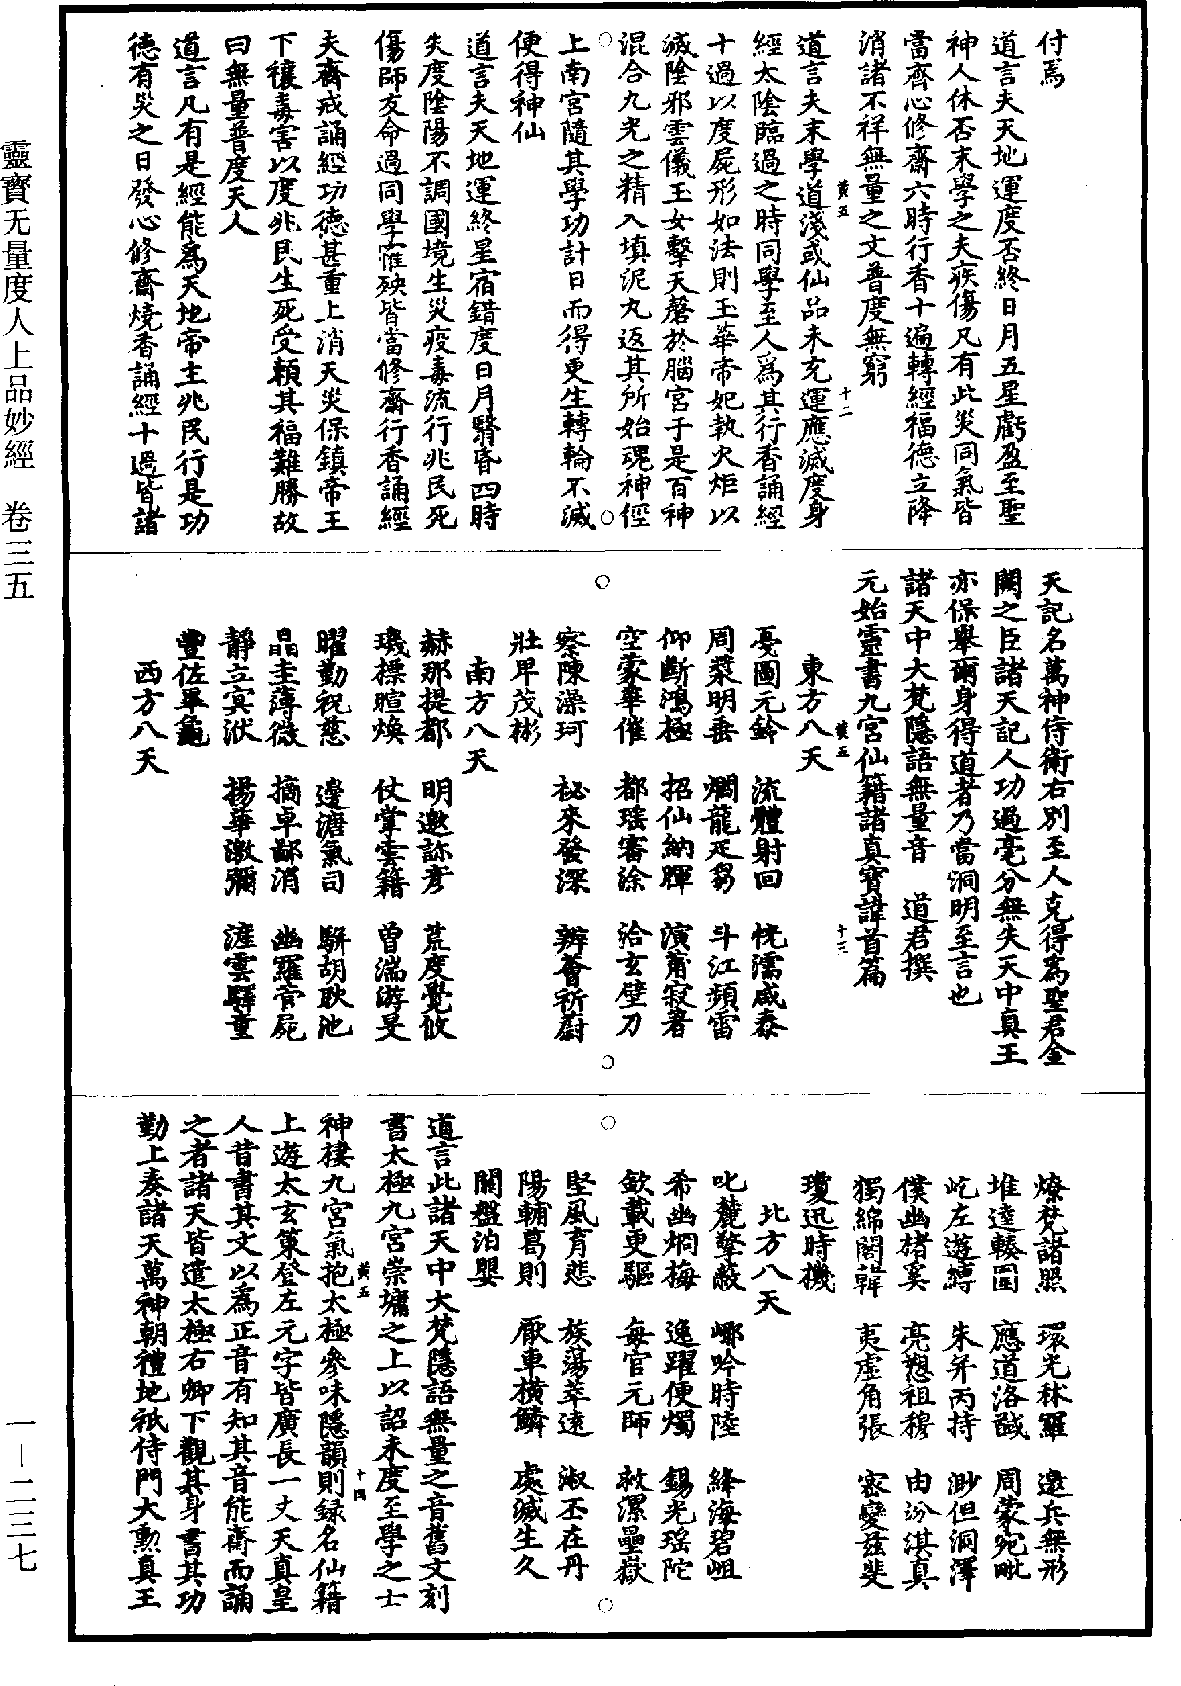 付焉
道言夫天地運度否終日月五星虧盈至聖
神人休否末學之夫疾傷凡有此災同氣皆
當齋心修齋六時行香十遍轉經福德立降
消諸不祥無量之文普度無窮
黃五 十二
道言夫末學道淺或仙品未充運應滅度身
經太陰臨過之時同學至人為其行香誦經
十過以度屍形如法則玉華帝妃執火炬以
滅陰邪雲儀玉女擊天磬於腦宮于是百神
混合九光之精入填泥丸返其所始魂神徑
上南宮隨其學功計日而得更生轉輪不滅
便得神仙
道言夫天地運終星宿錯度日月翳昏四時
失度陰陽不調國境生災疫毒流行兆民死
傷師友命過同學罹殃皆當修齋行香誦經
夫齋戒誦經功德甚重上消天災保鎮帝王
下禳毒害以度兆民生死受賴其福難勝故
曰無量普度天人
道言凡有是經能為天地帝主兆民行是功
德有災之日發心修齋燒香誦經十過皆諸
天記名萬神侍衛右別至人克得為聖君金
闕之臣諸天記人功過毫分無失天中真王
亦保舉爾身得道者乃當洞明至言也
諸天中大梵隱語無量音 道君撰
元始靈書九宮仙籍諸真寶諱首篇
黃五 十三
東方八天
憂圖元鈴 流體射回 恍濡咸泰
周槳明垂 爛龍疋芻 斗江頻雷
仰斷鴻極 招仙納暉 演育寂著
空蒙華催 都瑤審涂 洽玄壁刀
察陳澡珂 祕來發深 辨薈祈蔚
壯甲茂彬
南方八天
赫那提都 明邀諒彥 荒度覺攸
璣標暄煥 仗掌雲籍 曾湍游旻
曜勤祝慈 邊溏氣司 駢胡耿池
晶圭薄微 摘卓鄙消 幽羅官屍
靜立宾洑 揚華激彌 漄雲驛童
豐佐畢龜
西方八天
燎梵諸照 環光林羅 邀兵無形
堆逵輳圄 應道洛諴 周蒙宛毗
屹左遊縛 朱弁丙持 渺但洞澤
僕幽楮奚 亮憩祖穆 由汾淇真
獨綿閣韓 夷虛角張 密變茲斐
瓊迅時機
北方八天
叱麓擎敲 嘟吟時陸 絳海碧岨
希幽炯梅 逸躍便燭 錫光瑤陀
欽載更驅 每官元師 敕漯壘嶽
堅風育悲 族蕩萃遠 淑丕在丹
陽輔葛則 厭車橫鱗 處滅生久
關盤泊嬰
道言此諸天中大梵隱語無量之音舊文刻
書太極九宮崇墉之上以詔未度至學之士
黃五 十四
神棲九宮氣抱太極參味隱韻則錄名仙籍
上遊太玄策登左元字皆廣長一丈天真皇
人昔書其文以為正音有知其音能齋而誦
之者諸天皆遣太極右卿下觀其身書其功
勤上奏諸天萬神朝禮地祇侍門大勳真王
靈寶无量度人上品妙經 卷三五
一—二三七